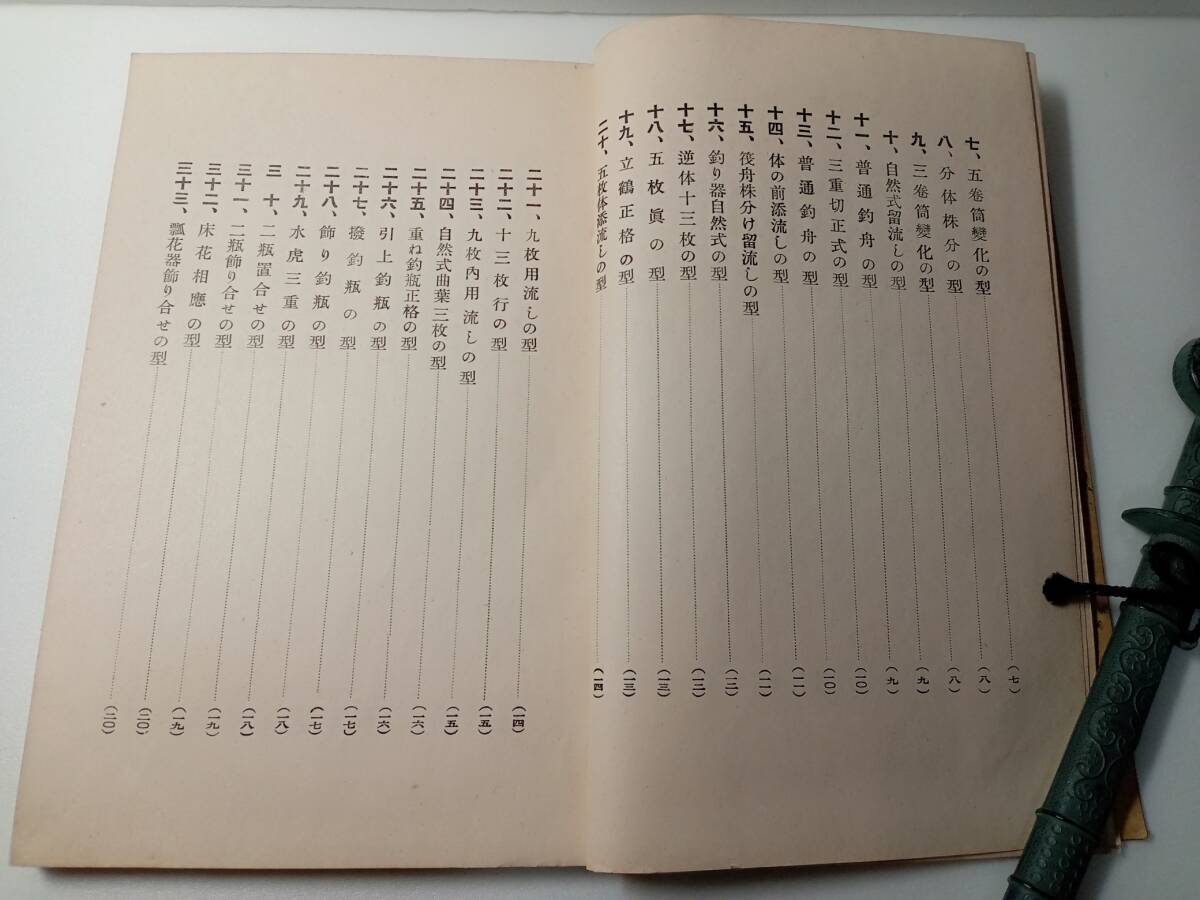 七、五卷筒變化の型……(七)
八、分体株分の型……(八)
九、三卷筒變化の型……(八)
十、自然式留流しの型……(九)
十一、普通釣舟の型……(九)
十二、三重切正式の型……(一〇)
十三、普通釣舟の型……(一〇)
十四、体の前添流しの型……(一一)
十五、筏舟株分け留流しの型……(一一)
十六、釣り器自然式の型……(一二)
十七、逆体十三枚の型……(一二)
十八、五枚眞の型……(一三)
十九、立鶴正格の型……(一三)
二十、五枚体添流しの型……(一四)
二十一、九枚用流しの型……(一四)
二十二、十三枚行の型……(一五)
二十三、九枚內用流しの型……(一五)
二十四、自然式曲葉三枚の型……(一六)
二十五、重ね釣瓶正格の型……(一六)
二十六、引上釣瓶の型……(一七)
二十七、撥釣瓶の型……(一七)
二十八、飾り釣瓶の型……(一八)
二十九、水虎三重の型……(一八)
三十、二瓶置合せの型……(一九)
三十一、二瓶飾り合せの型……(一九)
三十二、床花相應の型……(二〇)
三十三、瓢花器飾り合せの型……(二〇)